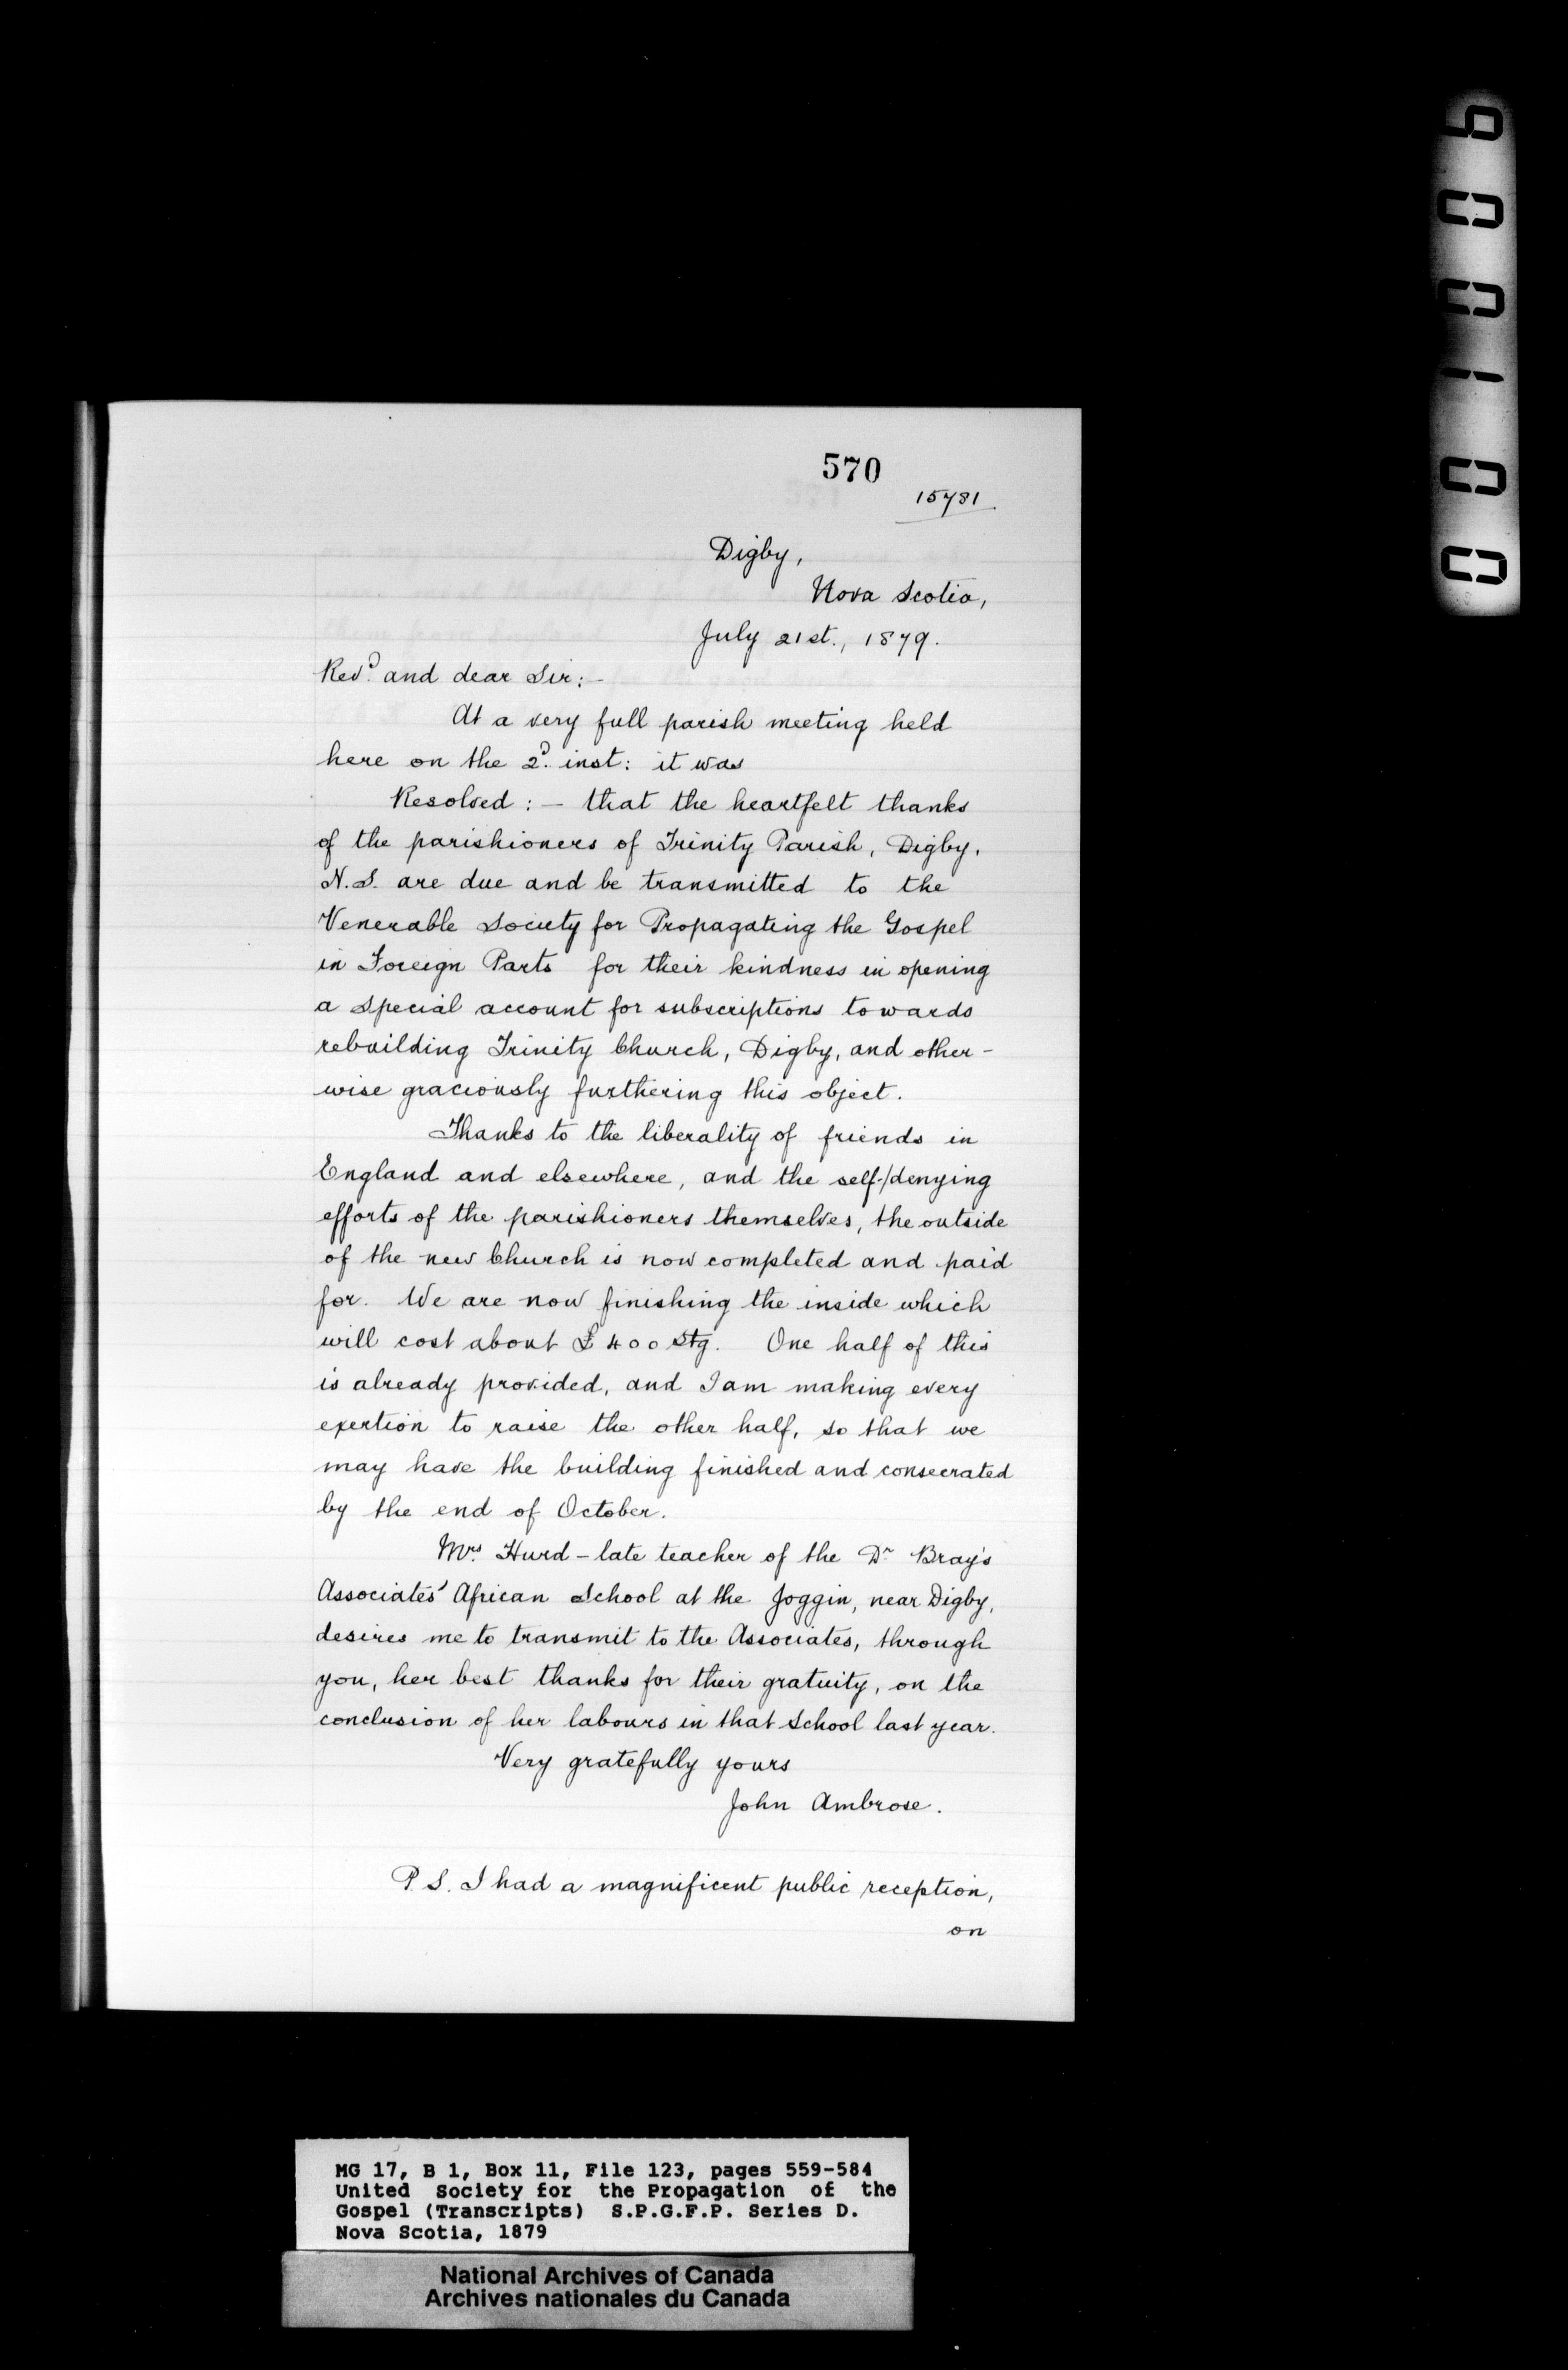 570
15781
Digby,
Nova Scotia,
July 21st., 1879.
Revd. and dear Sir:-
At a very full parish meeting held
here on the 2d. inst: it was
Resolved:- that the heartfelt thanks
of the parishioners of Trinity Parish, Digby,
N.S. are due and be transmitted to the
Venerable Society for Propagating the Gospel
in Foreign Parts for their kindness in opening
a special account for subscriptions towards
rebuilding Trinity Church, Digby, and other-
wise graciously furthering this object.
Thanks to the liberality of friends in
England and elsewhere, and the self-/denying
efforts of the parishioners themselves, the outside
of the new Church is now completed and paid
for. We are now finishing the inside which
will cost about £400 Stg. One half of this
is already provided, and I am making every
exertion to raise the other half, so that we
may have the building finished and consecrated
by the end of October.
Mrs. Hurd - late teacher of the Dr Bray's
Associates' African School at the Joggin, near Digby,
desires me to transmit to the Associates, through
you, her best thanks for their gratuity, on the
conclusion of her labours in that School last year.
Very gratefully yours
John Ambrose.
P.S. I had a magnificent public reception,
on
MG 17, B 1, Box 11, File 123, pages 559-584
United Society for the Propagation of the
Gospel (Transcripts) S.P.G.F.P. Series D.
Nova Scotia, 1879
National Archives of Canada
Archives nationales du Canada
001006